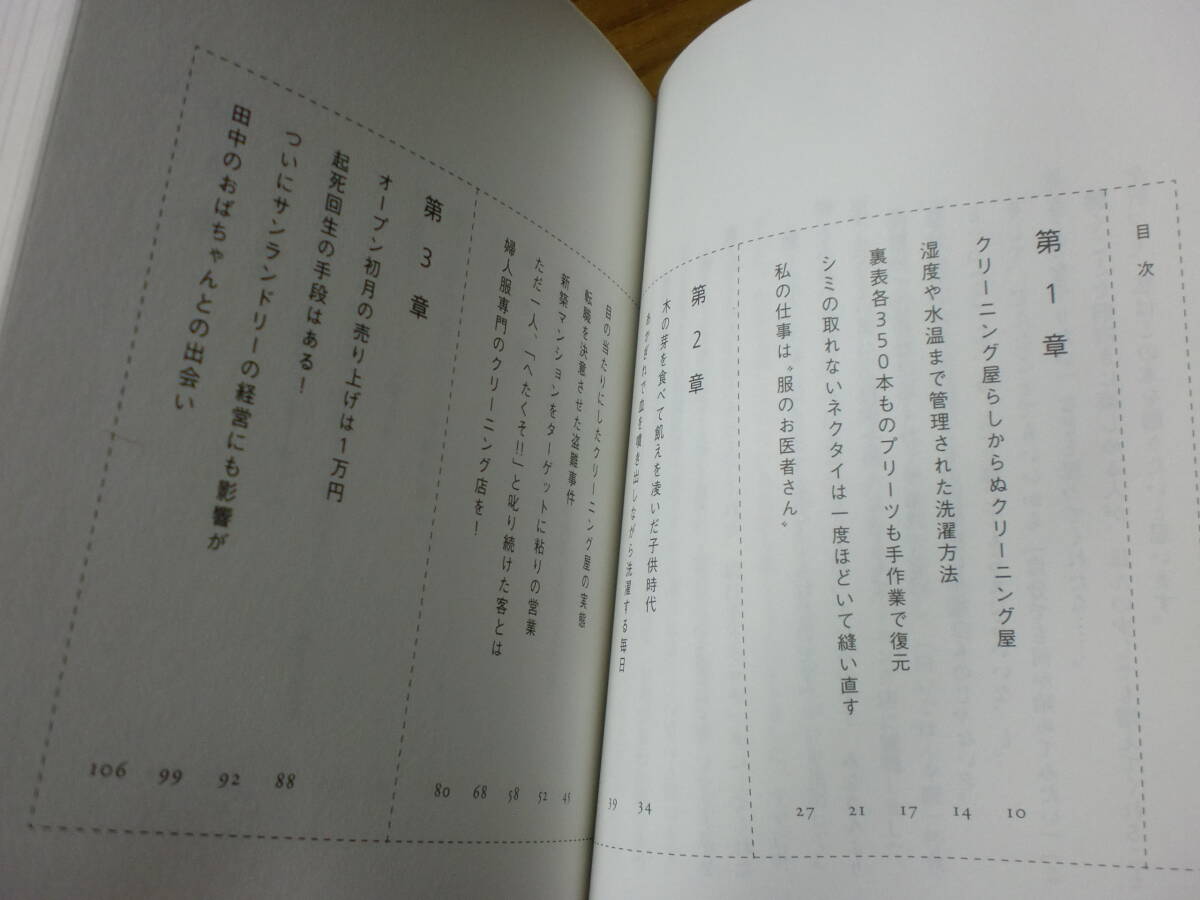 目次
第1章
クリーニング屋らしからぬクリーニング屋 10
湿度や水温まで管理された洗濯方法 14
裏表各350本ものプリーツも手作業で復元 17
シミの取れないネクタイは一度ほどいて縫い直す 21
私の仕事は〝服のお医者さん〟 27
第2章
木の芽を食べて飢えを凌いだ子供時代 34
あかぎれで血を噴き出しながら洗濯する毎日 39
目の当たりにしたクリーニング屋の実態 45
転職を決意させた盗難事件 52
新築マンションをターゲットに粘りの営業 58
ただ一人、「へたくそ!!」と叱り続けた客とは 68
婦人服専門のクリーニング店を! 80
第3章
オープン初月の売り上げは1万円 88
起死回生の手段はある! 92
ついにサンランドリーの経営にも影響が 99
田中のおばちゃんとの出会い 106